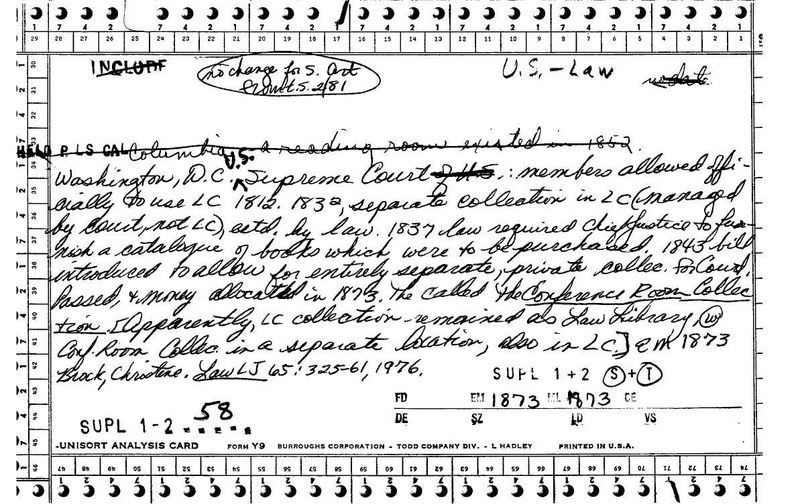 INCLUDE
no change for S. Art
from l.S. 2/81
U.S. - Law
update
HELD P. LS CAL Columbia - a reading room existed in 1852.
Washington, D.C. U.S. Supreme Court of U.S.: members allowed offi-
cially to use LC 1812. 1832, separate collection in LC (managed
by court, not LC), estd. by law. 1837 law required chief justice to fur-
nish a catalogue of books which were to be purchased. 1843 bill
introduced to allow for entirely separate, private collec. for Court.
Passed, & money allocated in 1873. The called the Conference Room Collec
tion. [Apparently, LC collection remained as Law Library, w
Conf. Room Collec. in a separate location, also in LC.] EM 1873
Brock, Christine. Law LJ 65: 325-61, 1976.
SUPL 1+2 S+T
FD EM 1873 ML 1873 CE
DE SZ LD VS
SUPL 1-2 58
-UNISORT ANALYSIS CARD FORM Y9 BURROUGHS CORPORATION - TODD COMPANY DIV. - L HADLEY PRINTED IN U.S.A.